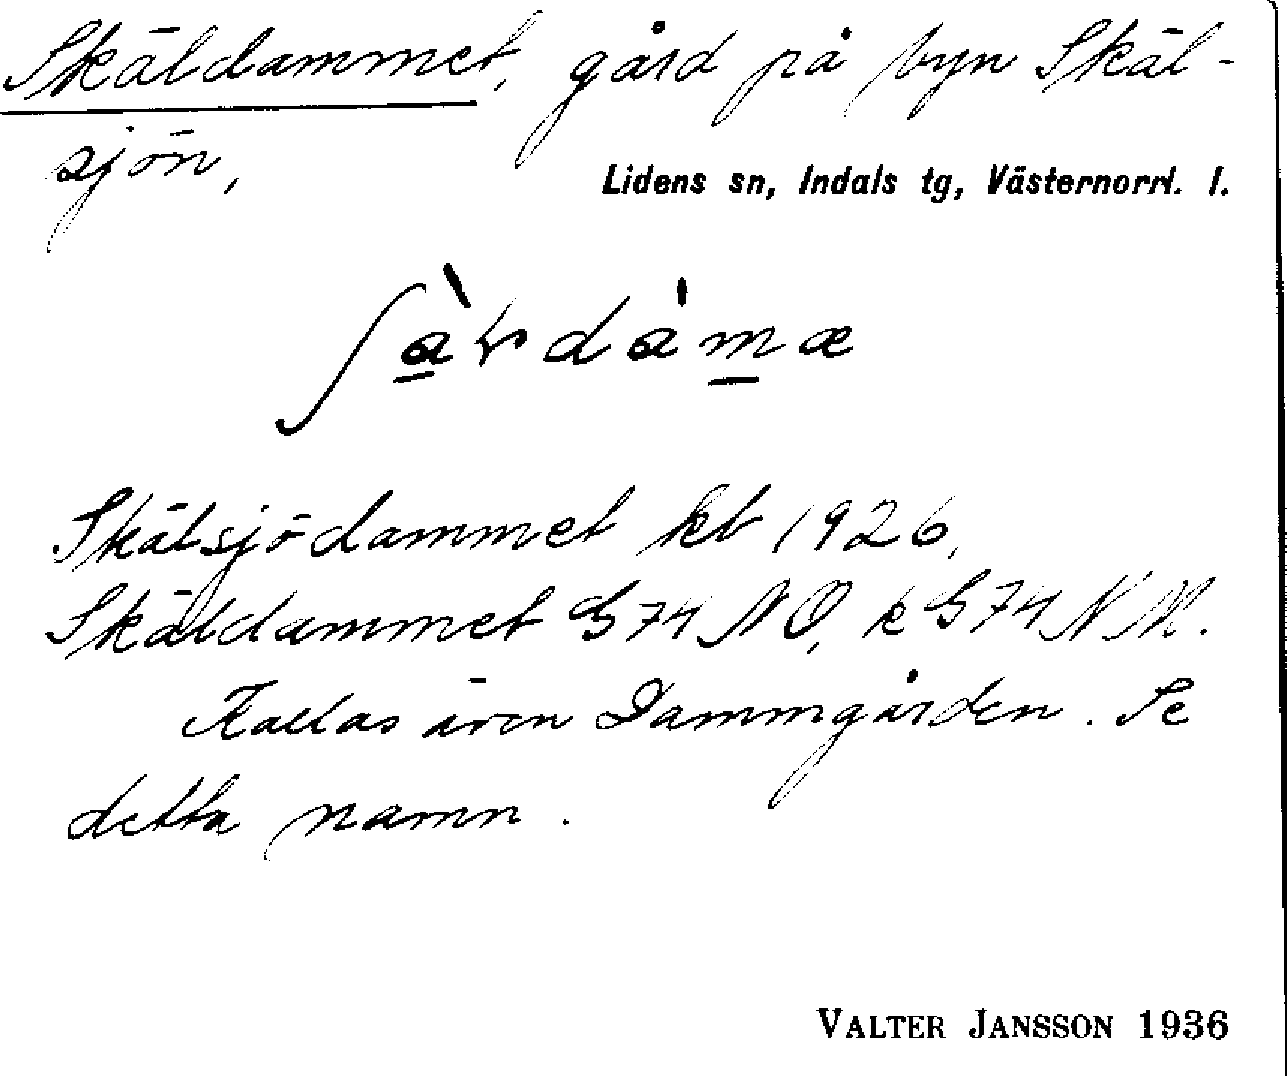 Skäldammet, gård på byn Skäl-
sjön,
Lidens sn, Indals tg, Västernorrl. l.
Skälsjödammet kb 1926,
Skäldammet G 74 NO, k G 74 NV.
Kallas även Dammgården. Se
detta namn.
VALTER JANSSON 1936